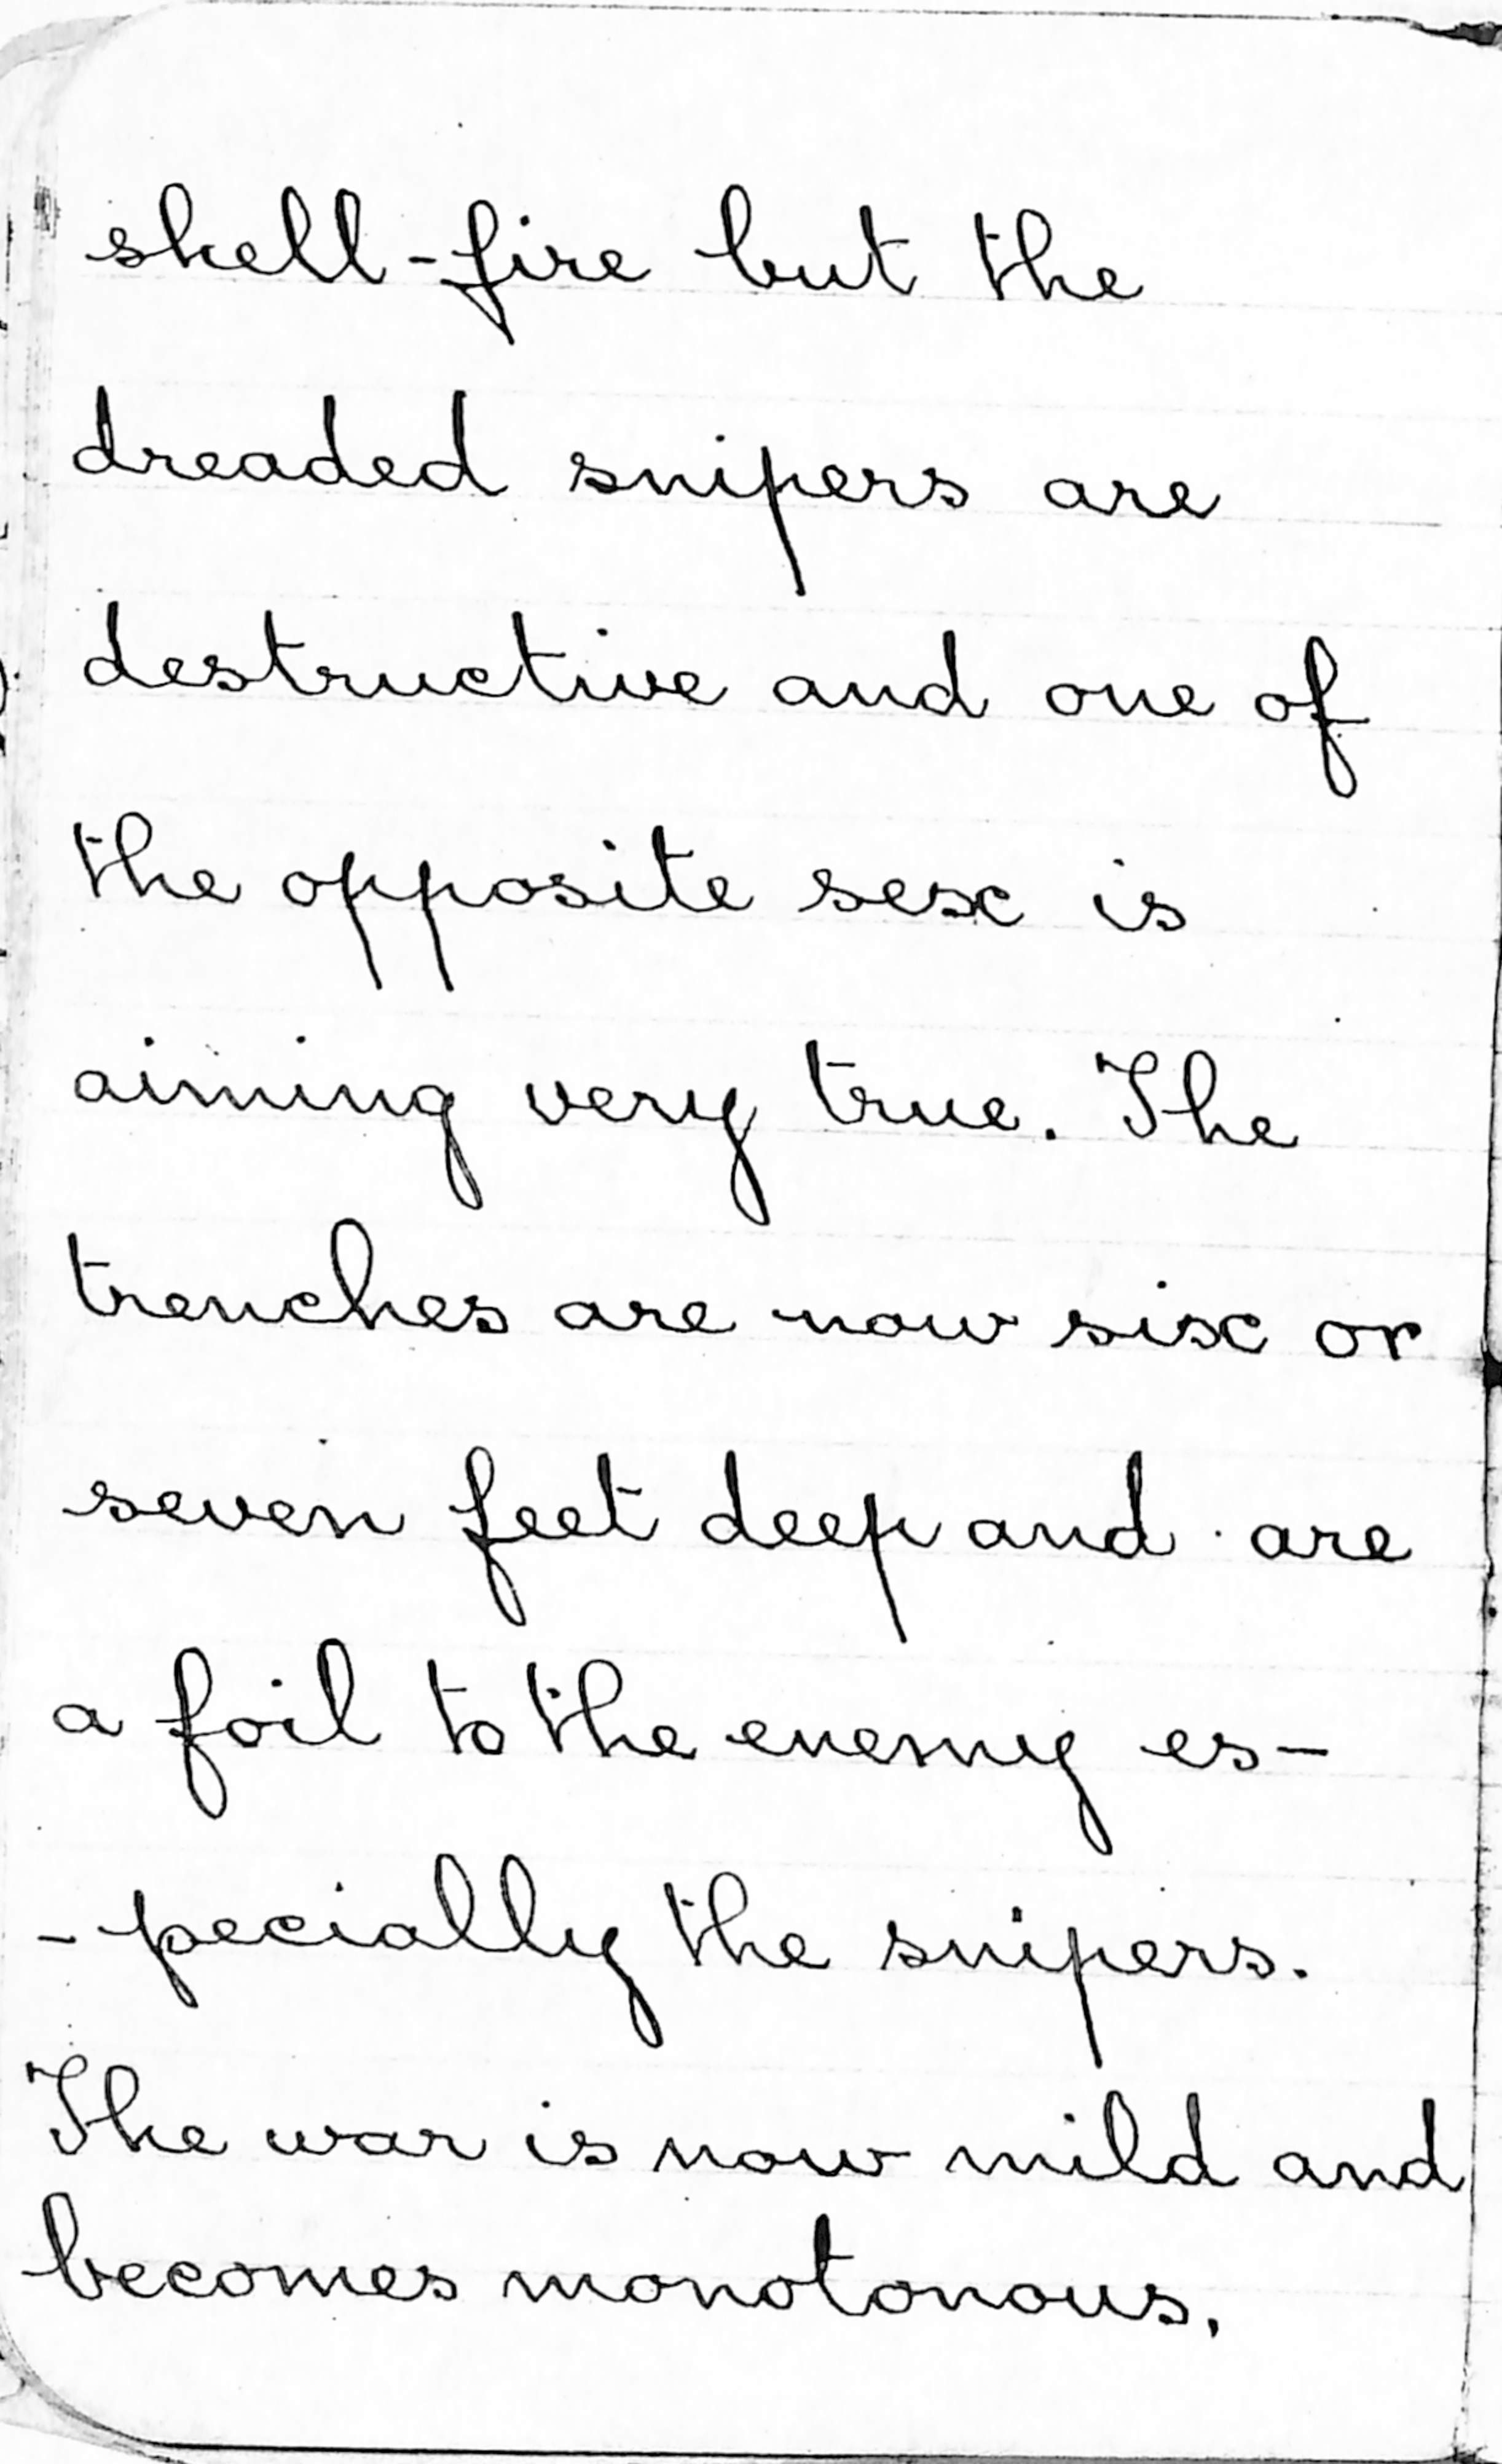 shell-fire but the
dreaded snipers are
destructive and one of
the opposite sex is
aiming very true. The
trenches are now six or
seven feet deep and are
a foil to the enemy es-
-pecially the snipers.
The war is now mild and
becomes monotonous.